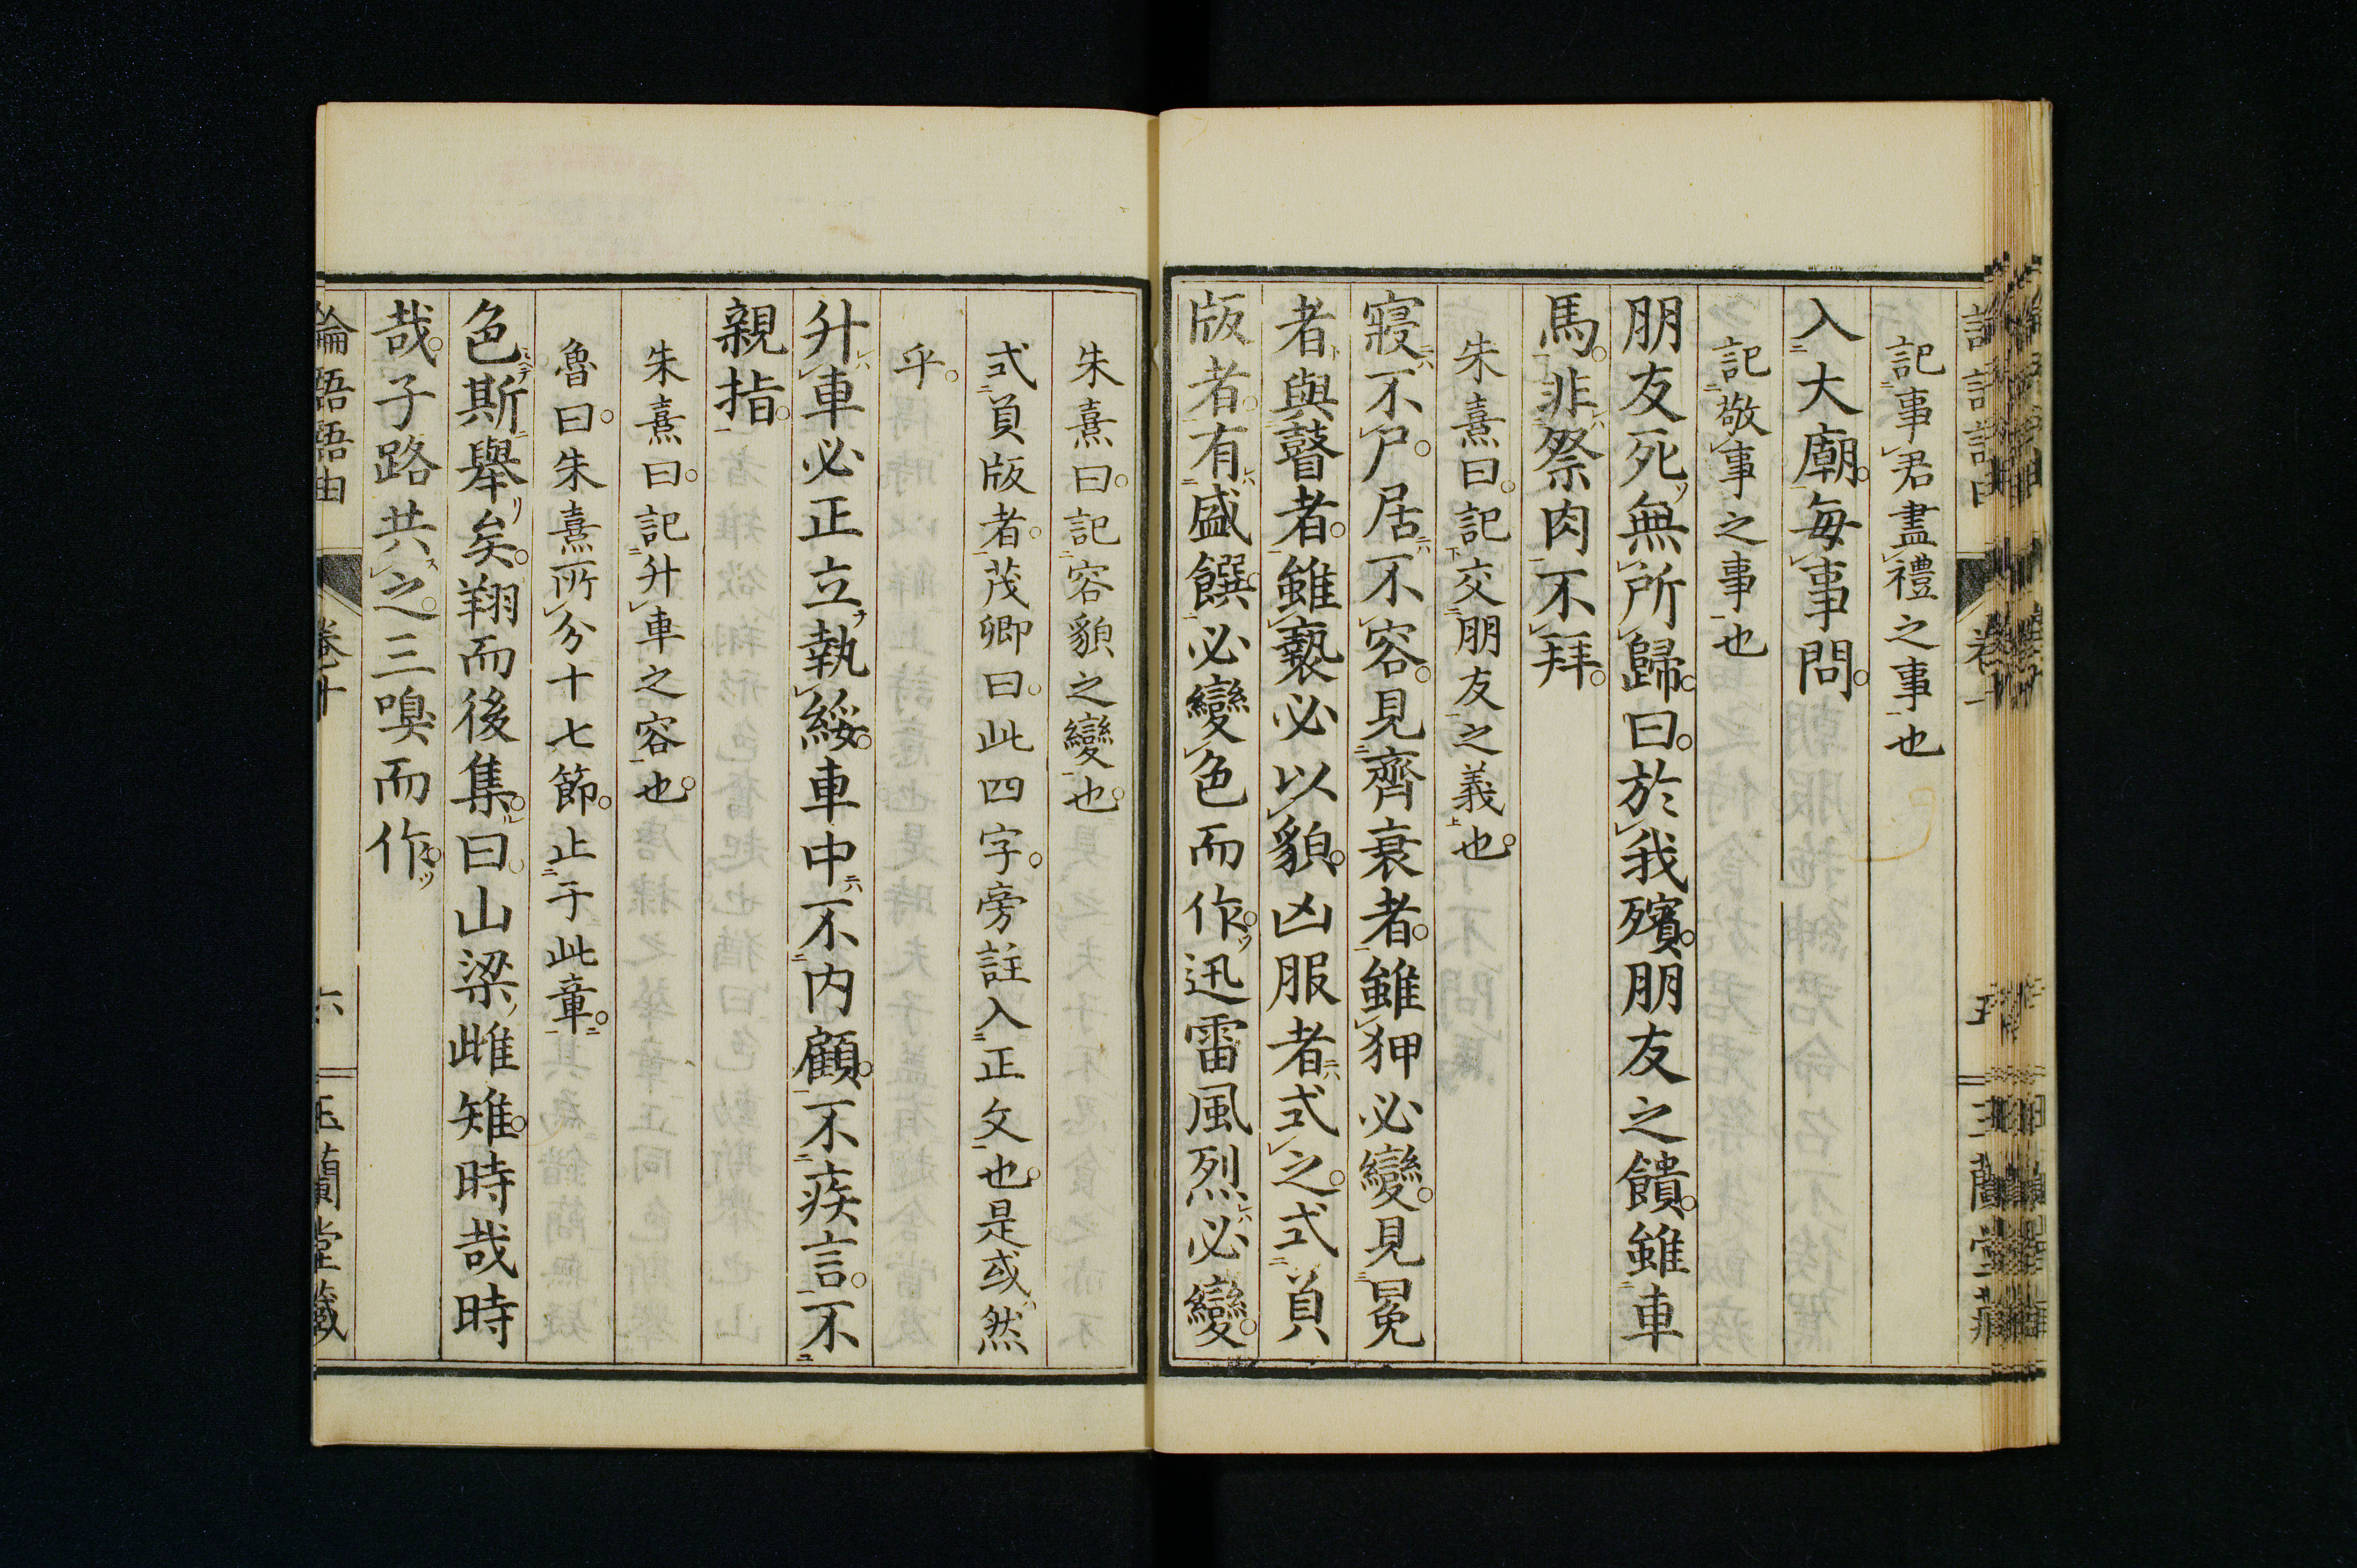 記事君盡禮之事也
入大廟。毎事問。
記敬事之事也
朋友死無所歸。曰。於我殯。朋友之饋。雖車
馬。非祭肉不拜。
朱熹曰。記交朋友之義也。
寢不尸。居不容。見齊衰者。雖狎必變。見冕
者與瞽者。雖褻必以貌。凶服者式之。式負
版者。有盛饌。必變色而作。迅雷風烈必變。
朱熹曰。記容貌之變也。
式負版者。茂卿曰。此四字。旁註入正文也。是或然
乎。
升車必正立執綏。車中不内顧。不疾言。不
親指。
朱熹曰。記升車之容也。
魯曰。朱熹所分十七節。止于此章。
色斯舉矣。翔而後集。曰。山梁雌雉。時哉時
哉。子路共之。三嗅而作。
論語語由 卷十 六 玉蘭堂藏